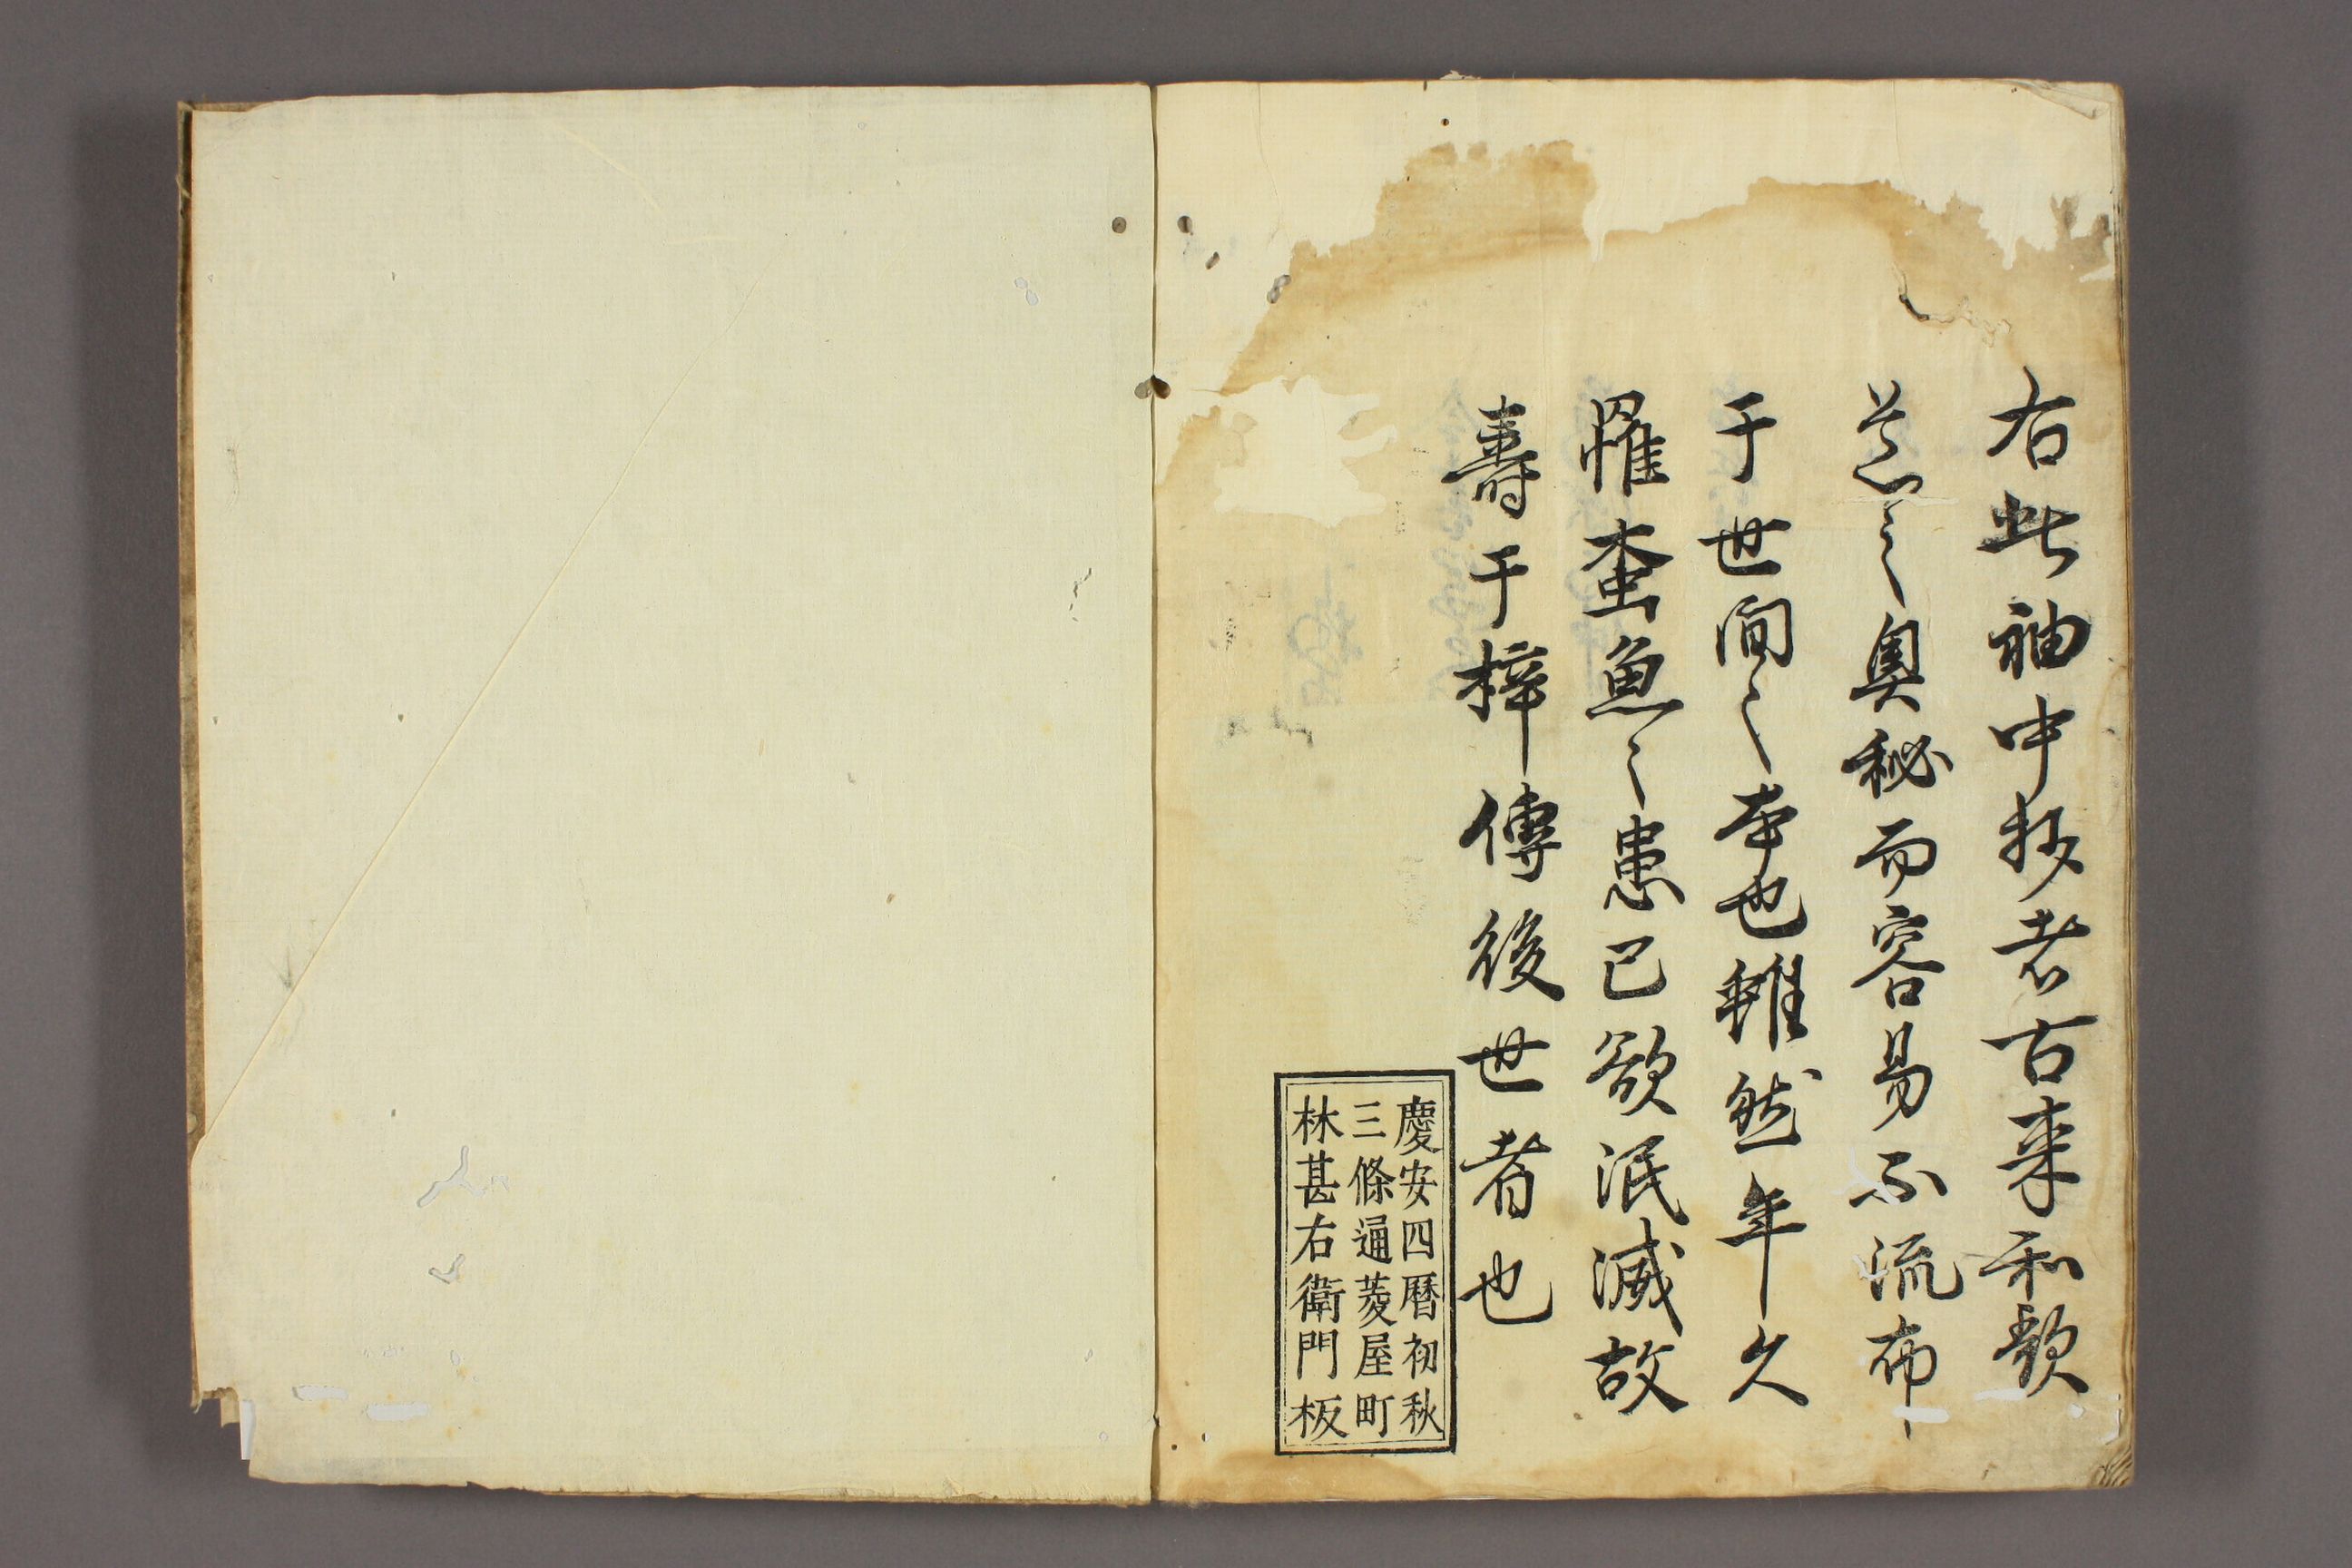 右此袖中抄者古来和歌
之奥秘而容易不流布
于世間之本也雖然年久
罹蚕魚之患已欲泯滅故
壽于梓傳後世者也
慶安四暦初秋
三條通菱屋町
林甚右衛門板